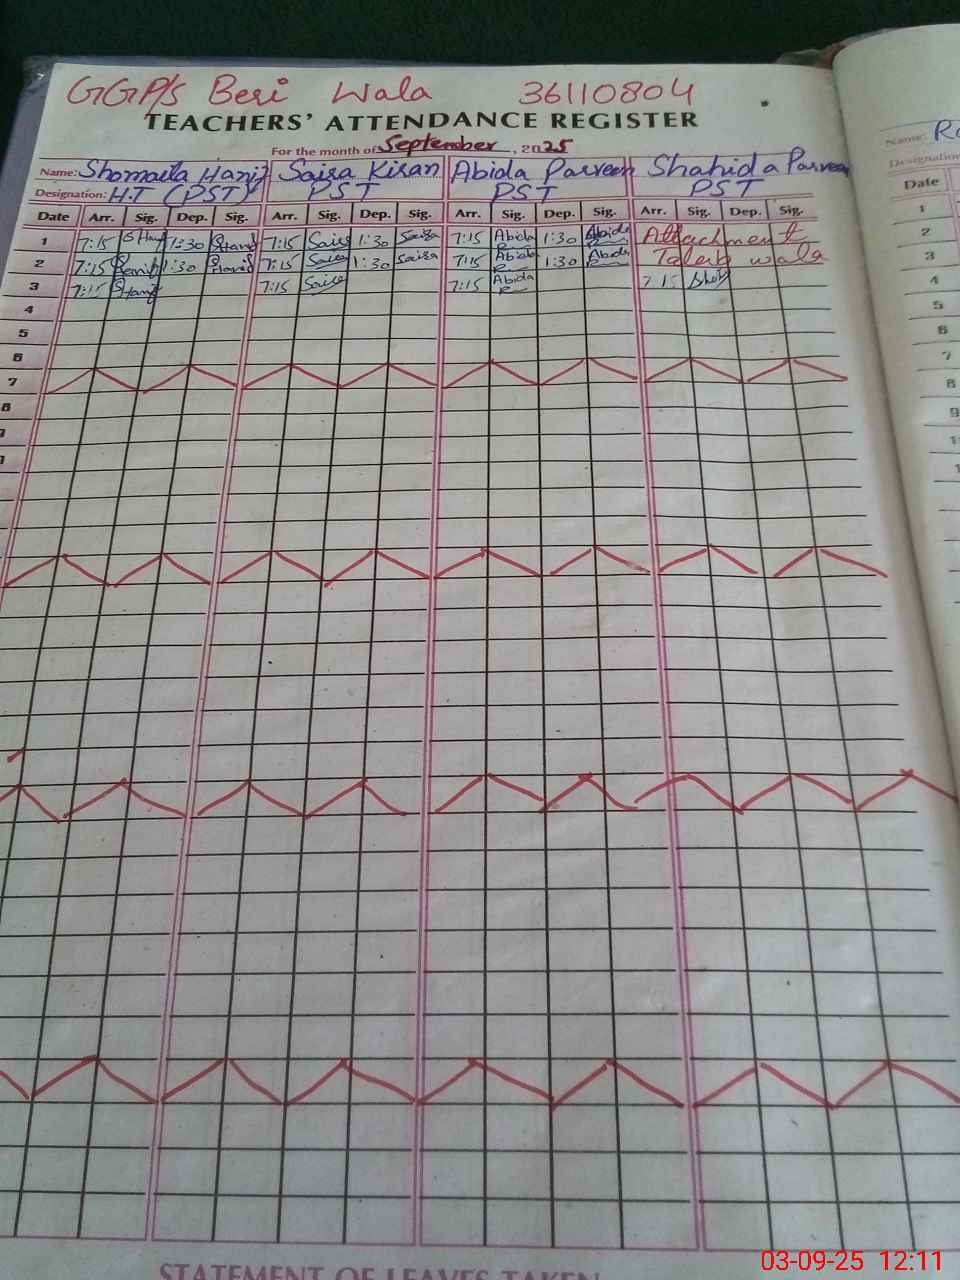 GGP/S Beri Wala 36110804
TEACHERS' ATTENDANCE REGISTER
For the month of September, 2025
Name: Shomaila Hanif Saira Kiran Abida Parveen Shahida Parveen
Designation: H.T (PST) PST PST PST
Date Arr. Sig. Dep. Sig. Arr. Sig. Dep. Sig. Arr. Sig. Dep. Sig. Arr. Sig. Dep. Sig.
1 7:15 SHanif 1:30 SHanif 7:15 Saira 1:30 Saira 7:15 Abida P 1:30 Abida P Attachment
2 7:15 SHanif 1:30 SHanif 7:15 Saira 1:30 Saira 7:15 Abida P 1:30 Abida P Taleb wala
3 7:15 SHanif 7:15 Saira 7:15 Abida P 7:15
4
5
6
7
8
STATEMENT OF LEAVES TAKEN
Name: Ra
Designation
Date
1
2
3
4
5
6
7
8
9
03-09-25 12:11